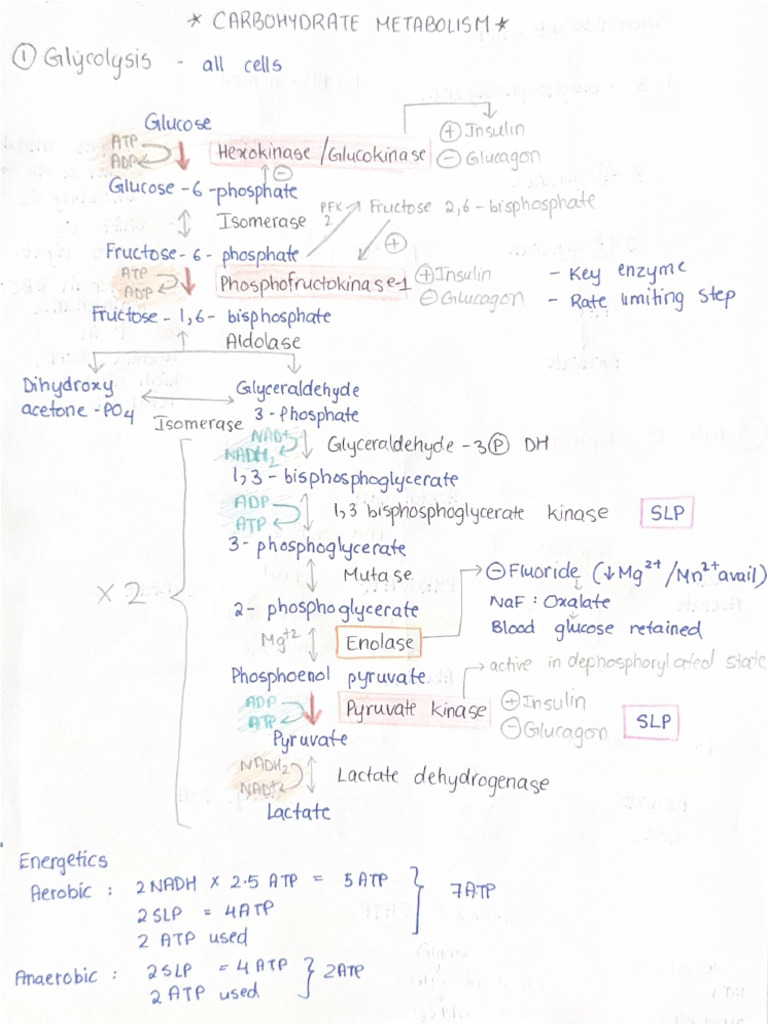 * CARBOHYDRATE METABOLISM *
① Glycolysis - all cells
Glucose
ATP
ADP
Hexokinase / Glucokinase
⊕ Insulin
⊖ Glucagon
⊖
Glucose - 6 - phosphate
Isomerase
PFK 2
Fructose 2,6 - bisphosphate
⊕
Fructose - 6 - phosphate
ATP
ADP
Phosphofructokinase-1
⊕ Insulin
⊖ Glucagon
- Key enzyme
- Rate limiting step
Fructose - 1,6 - bisphosphate
Aldolase
Dihydroxy
acetone - PO4
Isomerase
Glyceraldehyde
3 - phosphate
NAD+
NADH2
Glyceraldehyde - 3 Ⓟ DH
1,3 - bisphosphoglycerate
ADP
ATP
1,3 bisphosphoglycerate kinase
SLP
3 - phosphoglycerate
Mutase
x 2
2 - phosphoglycerate
Mg+2
Enolase
⊖ Fluoride (↓Mg2+ / Mn2+ avail)
NaF : Oxalate
Blood glucose retained
Phosphoenol pyruvate
→ active in dephosphorylated state
ADP
ATP
Pyruvate kinase
⊕ Insulin
⊖ Glucagon
SLP
Pyruvate
NADH2
NAD+
Lactate dehydrogenase
Lactate
Energetics
Aerobic : 2 NADH x 2.5 ATP = 5 ATP
2 SLP = 4 ATP
2 ATP used
7 ATP
Anaerobic : 2 SLP = 4 ATP
2 ATP used
2 ATP